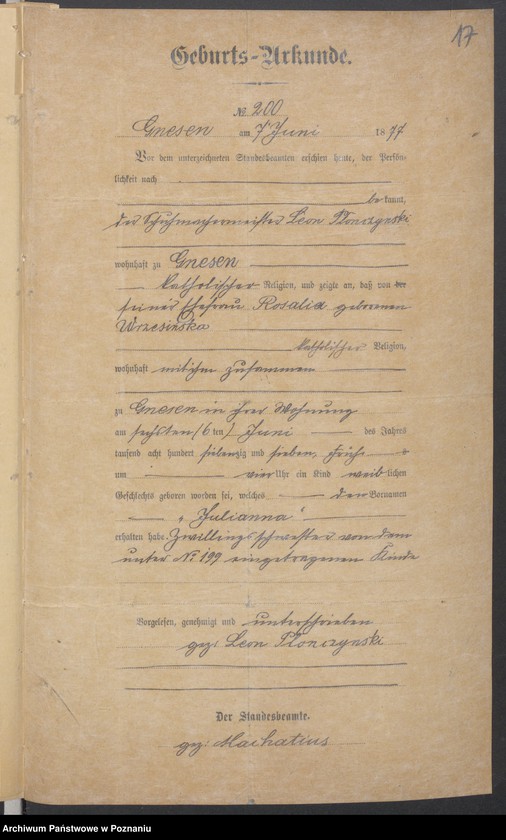 17
Geburts-Urkunde.
№ 200
Gnesen am 7 Juni 1877
Vor dem unterzeichneten Standesbeamten erschien heute, der Persön-
lichkeit nach
bekannt,
der Schuhmachermeister Leon Płonczynski
wohnhaft zu Gnesen
katholischer Religion, und zeigte an, daß von der
seiner Ehefrau Rosalia geborenen
Wrzesińska
katholischer Religion,
wohnhaft mit ihm zusammen
zu Gnesen in ihrer Wohnung
am sechsten (6 ten) Juni des Jahres
tausend acht hundert siebenzig und sieben, Früh
um vier Uhr ein Kind weiblichen
Geschlechts geboren worden sei, welches den Vornamen
„Julianna"
erhalten habe. Zwillingsschwester von dem
unter № 199 eingetragenen Kinde
Vorgelesen, genehmigt und unterschrieben
gez: Leon Płonczynski
Der Standesbeamte.
gez: Machatius
Archiwum Państwowe w Poznaniu